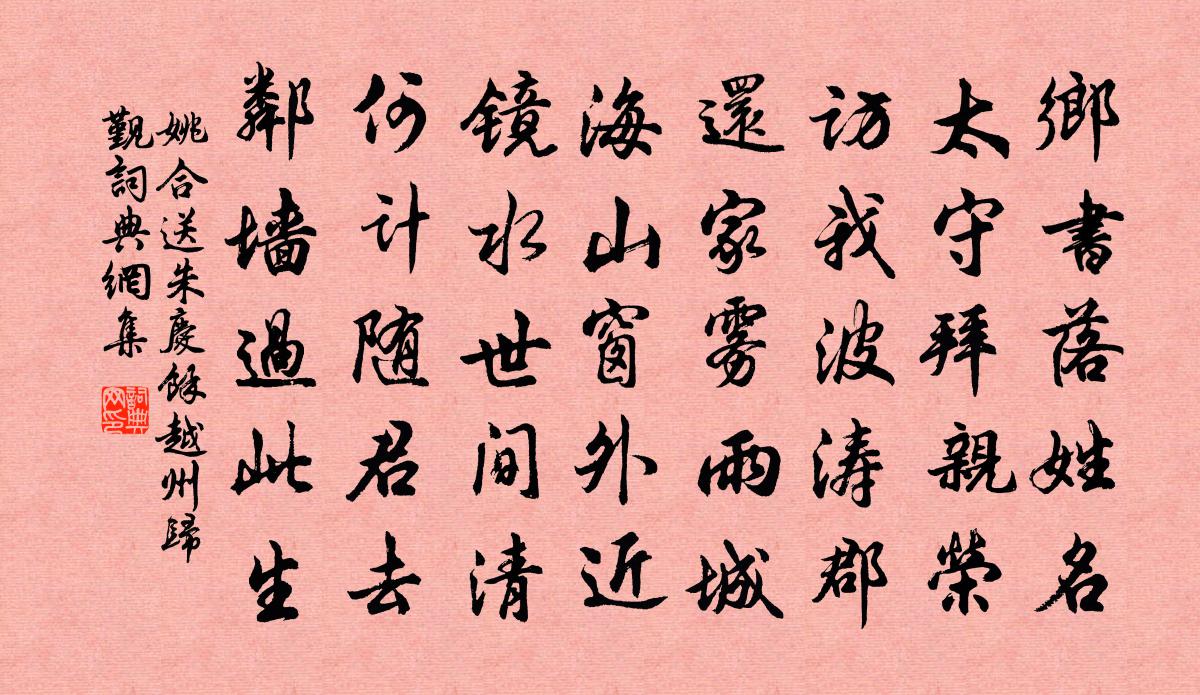 鄉書落姓名
太守拜親榮
訪我波涛郡
還家雾雨城
海山窗外近
镜水世间清
何计随君去
鄰墙過此生
姚合送朱慶餘越州歸
觐詞典網集
詞典网印